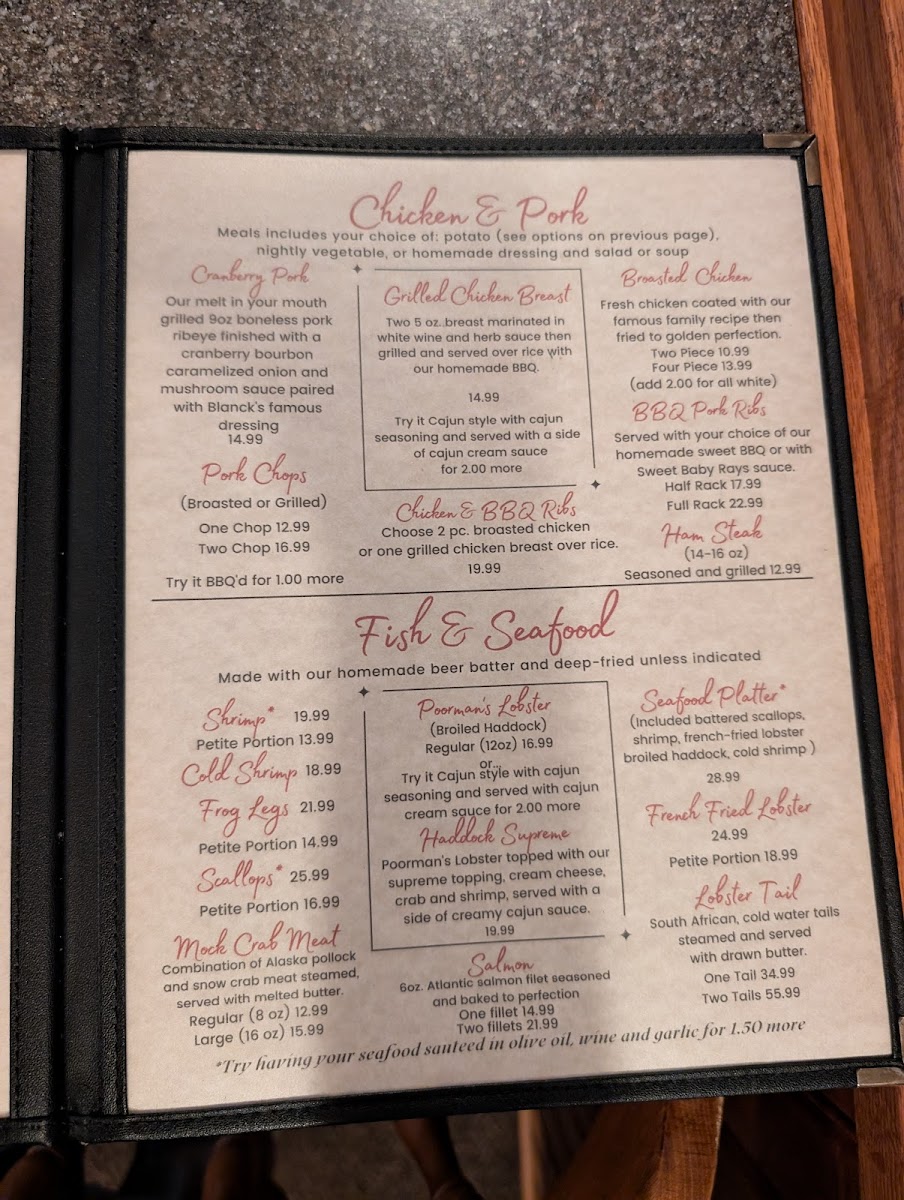 Chicken & Pork
Meals includes your choice of: potato (see options on previous page),
nightly vegetable, or homemade dressing and salad or soup
Cranberry Pork
Our melt in your mouth
grilled 9oz boneless pork
ribeye finished with a
cranberry bourbon
caramelized onion and
mushroom sauce paired
with Blanck's famous
dressing
14.99
Pork Chops
(Broasted or Grilled)
One Chop 12.99
Two Chop 16.99
Try it BBQ'd for 1.00 more
Grilled Chicken Breast
Two 5 oz. breast marinated in
white wine and herb sauce then
grilled and served over rice with
our homemade BBQ.
14.99
Try it Cajun style with cajun
seasoning and served with a side
of cajun cream sauce
for 2.00 more
Chicken & BBQ Ribs
Choose 2 pc. broasted chicken
or one grilled chicken breast over rice.
19.99
Broasted Chicken
Fresh chicken coated with our
famous family recipe then
fried to golden perfection.
Two Piece 10.99
Four Piece 13.99
(add 2.00 for all white)
BBQ Pork Ribs
Served with your choice of our
homemade sweet BBQ or with
Sweet Baby Rays sauce.
Half Rack 17.99
Full Rack 22.99
Ham Steak
(14-16 oz)
Seasoned and grilled 12.99
Fish & Seafood
Made with our homemade beer batter and deep-fried unless indicated
Shrimp* 19.99
Petite Portion 13.99
Cold Shrimp 18.99
Frog Legs 21.99
Petite Portion 14.99
Scallops* 25.99
Petite Portion 16.99
Mock Crab Meat
Combination of Alaska pollock
and snow crab meat steamed,
served with melted butter.
Regular (8 oz) 12.99
Large (16 oz) 15.99
Poorman's Lobster
(Broiled Haddock)
Regular (12oz) 16.99
or...
Try it Cajun style with cajun
seasoning and served with cajun
cream sauce for 2.00 more
Haddock Supreme
Poorman's Lobster topped with our
supreme topping, cream cheese,
crab and shrimp, served with a
side of creamy cajun sauce.
19.99
Salmon
6oz. Atlantic salmon filet seasoned
and baked to perfection
One fillet 14.99
Two fillets 21.99
Seafood Platter*
(Included battered scallops,
shrimp, french-fried lobster
broiled haddock, cold shrimp )
28.99
French Fried Lobster
24.99
Petite Portion 18.99
Lobster Tail
South African, cold water tails
steamed and served
with drawn butter.
One Tail 34.99
Two Tails 55.99
*Try having your seafood sauteed in olive oil, wine and garlic for 1.50 more